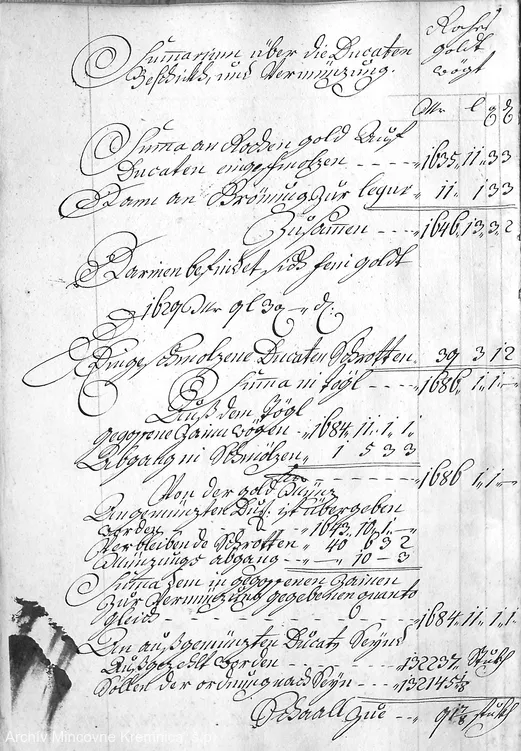 Summarium über die Ducaten
Beschick, und Vermünzung.
Rohes
goldt
wögt
Mr l q d
Summa an Rohen gold Auf
Ducaten eingeschmolzen - - - - 1635 11 3 3
Dann an Brönnung zur legur 11 1 3 3
Zusamen - - - - 1646 13 3 2
Darinen befindet sich fein goldt
1629 Mr 9 l 3 q — d.
Eingeschmolzene Ducaten Schrotten 39 3 1 2
Summa in tögl - - - - 1686 1 1 —
Auß dem Tögl
gegossene Zainn wögen - 1684 11 1 1
Abgang in Schmölzen 1 5 3 3
1686 1 1 —
Von der gold Münz
Ausgemünzten Duc: ist übergeben
worden - - 1643 10 1 —
Verbleibende Schrotten 40 6 3 2
Münzungs abgang - - — 10 — 3
Summa dem in gegossenen Zainen
Zur Vermünzung gegebenen quanto
gleich - - - - 1684 11 1 1
An außgemünzten Ducatn Seynd
Außgezelt worden - - - - 132237 Stukh
Sollen der ordnung nach Seyn - - - 132145 1/8
Schaall zue - - 91 7/8 Stukh
Archív Mincovne Kremnica